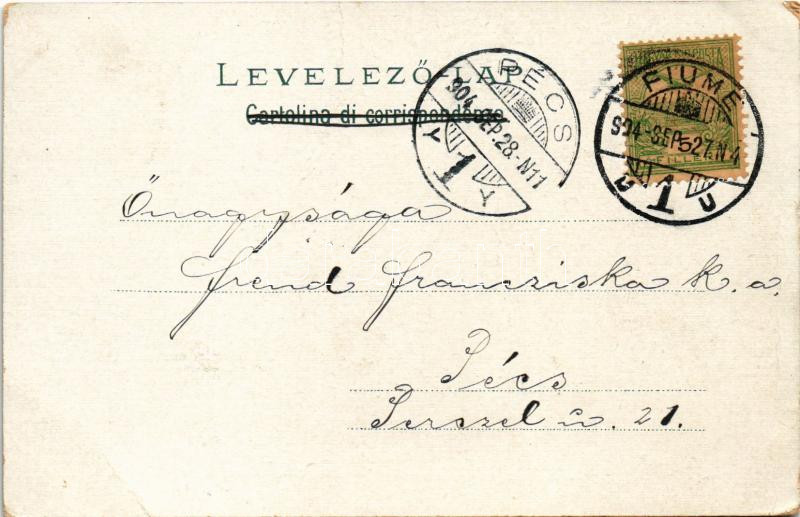 LEVELEZŐ-LAP
Cartolina di corrispondenza
PÉCS
904 SEP. 28. N11
Y 1 Y
FIUME
904 SEP 27. N4
1 U
5
FILLÉR
Őnagysága
frend Francziska k. a.
Pécs
Perczel u. 21.